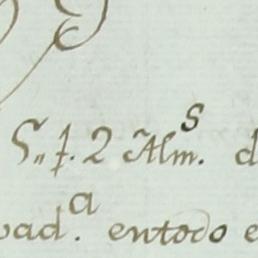 2 Alm.s d
vad.a entodo e